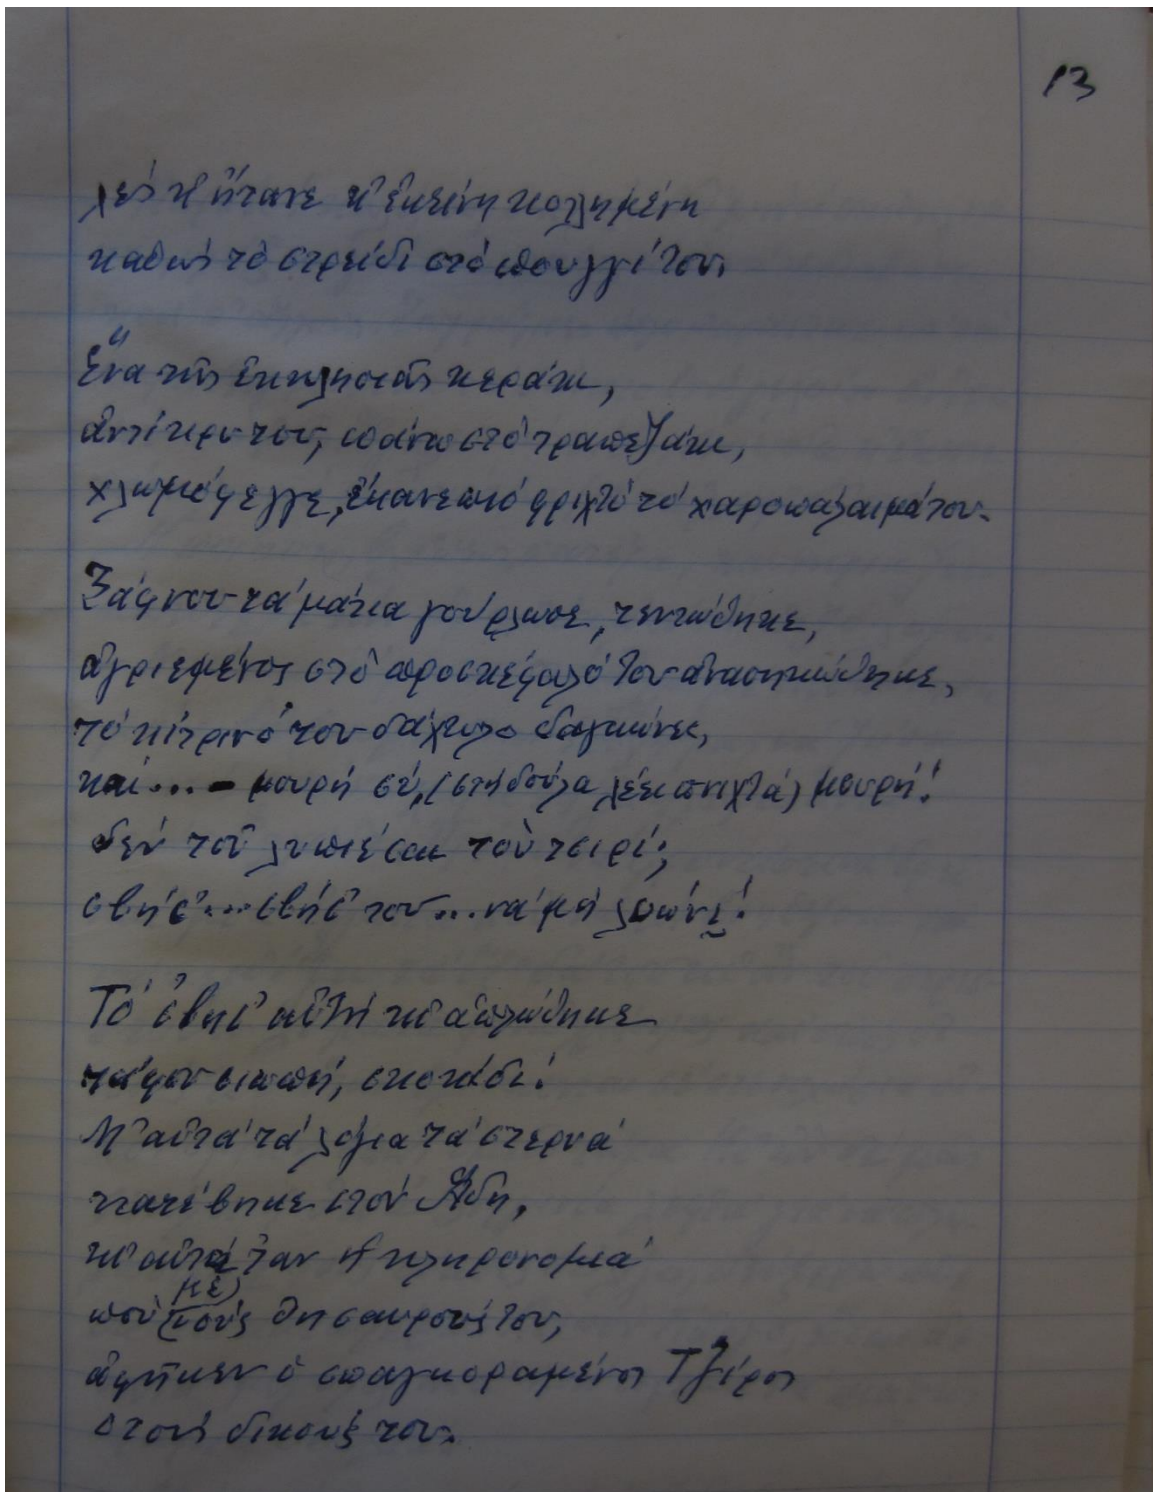 13
λές κ' ἤτανε κ' ἐκείνη κολημένη
καθώς τὸ στρείδι στὸ πουγγί του.
Ἕνα τῆς ἐκκλησιᾶς κεράκι,
ἀντίκρυ του, πάνω στὸ τραπεζάκι,
χλωμόφεγγε, ἔκανε πιό φριχτό τό χαροπάλαιμά του.
Ξάφνου τά μάτια γούρλωσε, τεντώθηκε,
ἀγριεμένος στὸ προσκέφαλό του ἀνασηκώθηκε,
τό κίτρινό του δάχτυλο δαγκώνει,
καί... – μουρή σύ, (στή δούλα λέει πνιχτά) μουρή!
δέν τοῦ λυπιέσαι τοῦ τσιρί;
σβήσ'... σβήσ' του... νά μή λυώνῃ!
Τό 'σβησ' αὐτή κι' ἁπλώθηκε
τάφου σιωπή, σκοτάδι!
Μ' αὐτά τά λόγια τά στερνά
κατέβηκε στόν Ἅδη,
κι' αὐτά 'ταν ἡ κληρονομιά
πού (μέ) τούς θησαυρούς του,
ἀφῆκεν ὁ σπαγκοραμένος Τζίρος
στούς δικούς του.